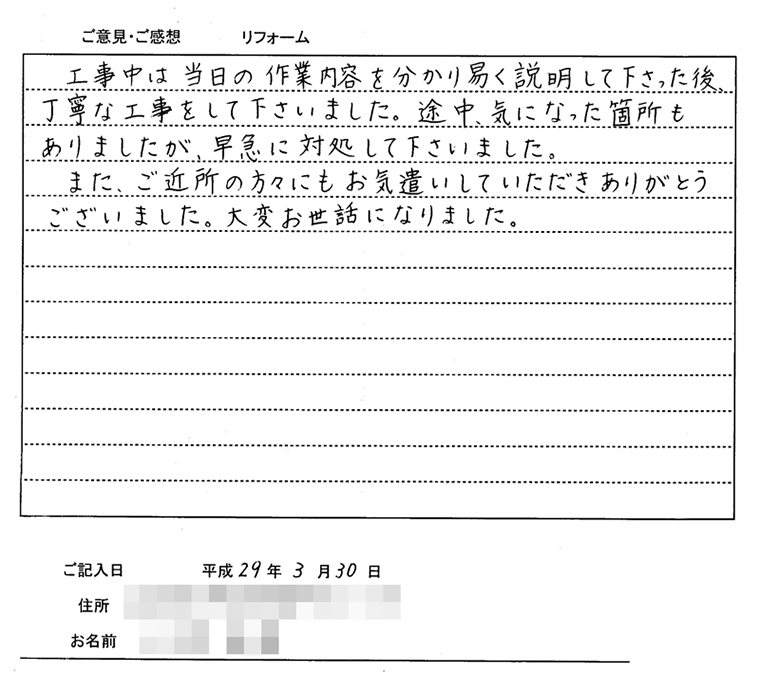 ご意見・ご感想 リフォーム
工事中は当日の作業内容を分かり易く説明して下さった後、
丁寧な工事をして下さいました。途中、気になった箇所も
ありましたが、早急に対処して下さいました。
また、ご近所の方々にもお気遣いしていただきありがとう
ございました。大変お世話になりました。
ご記入日 平成29年3月30日
住所
お名前